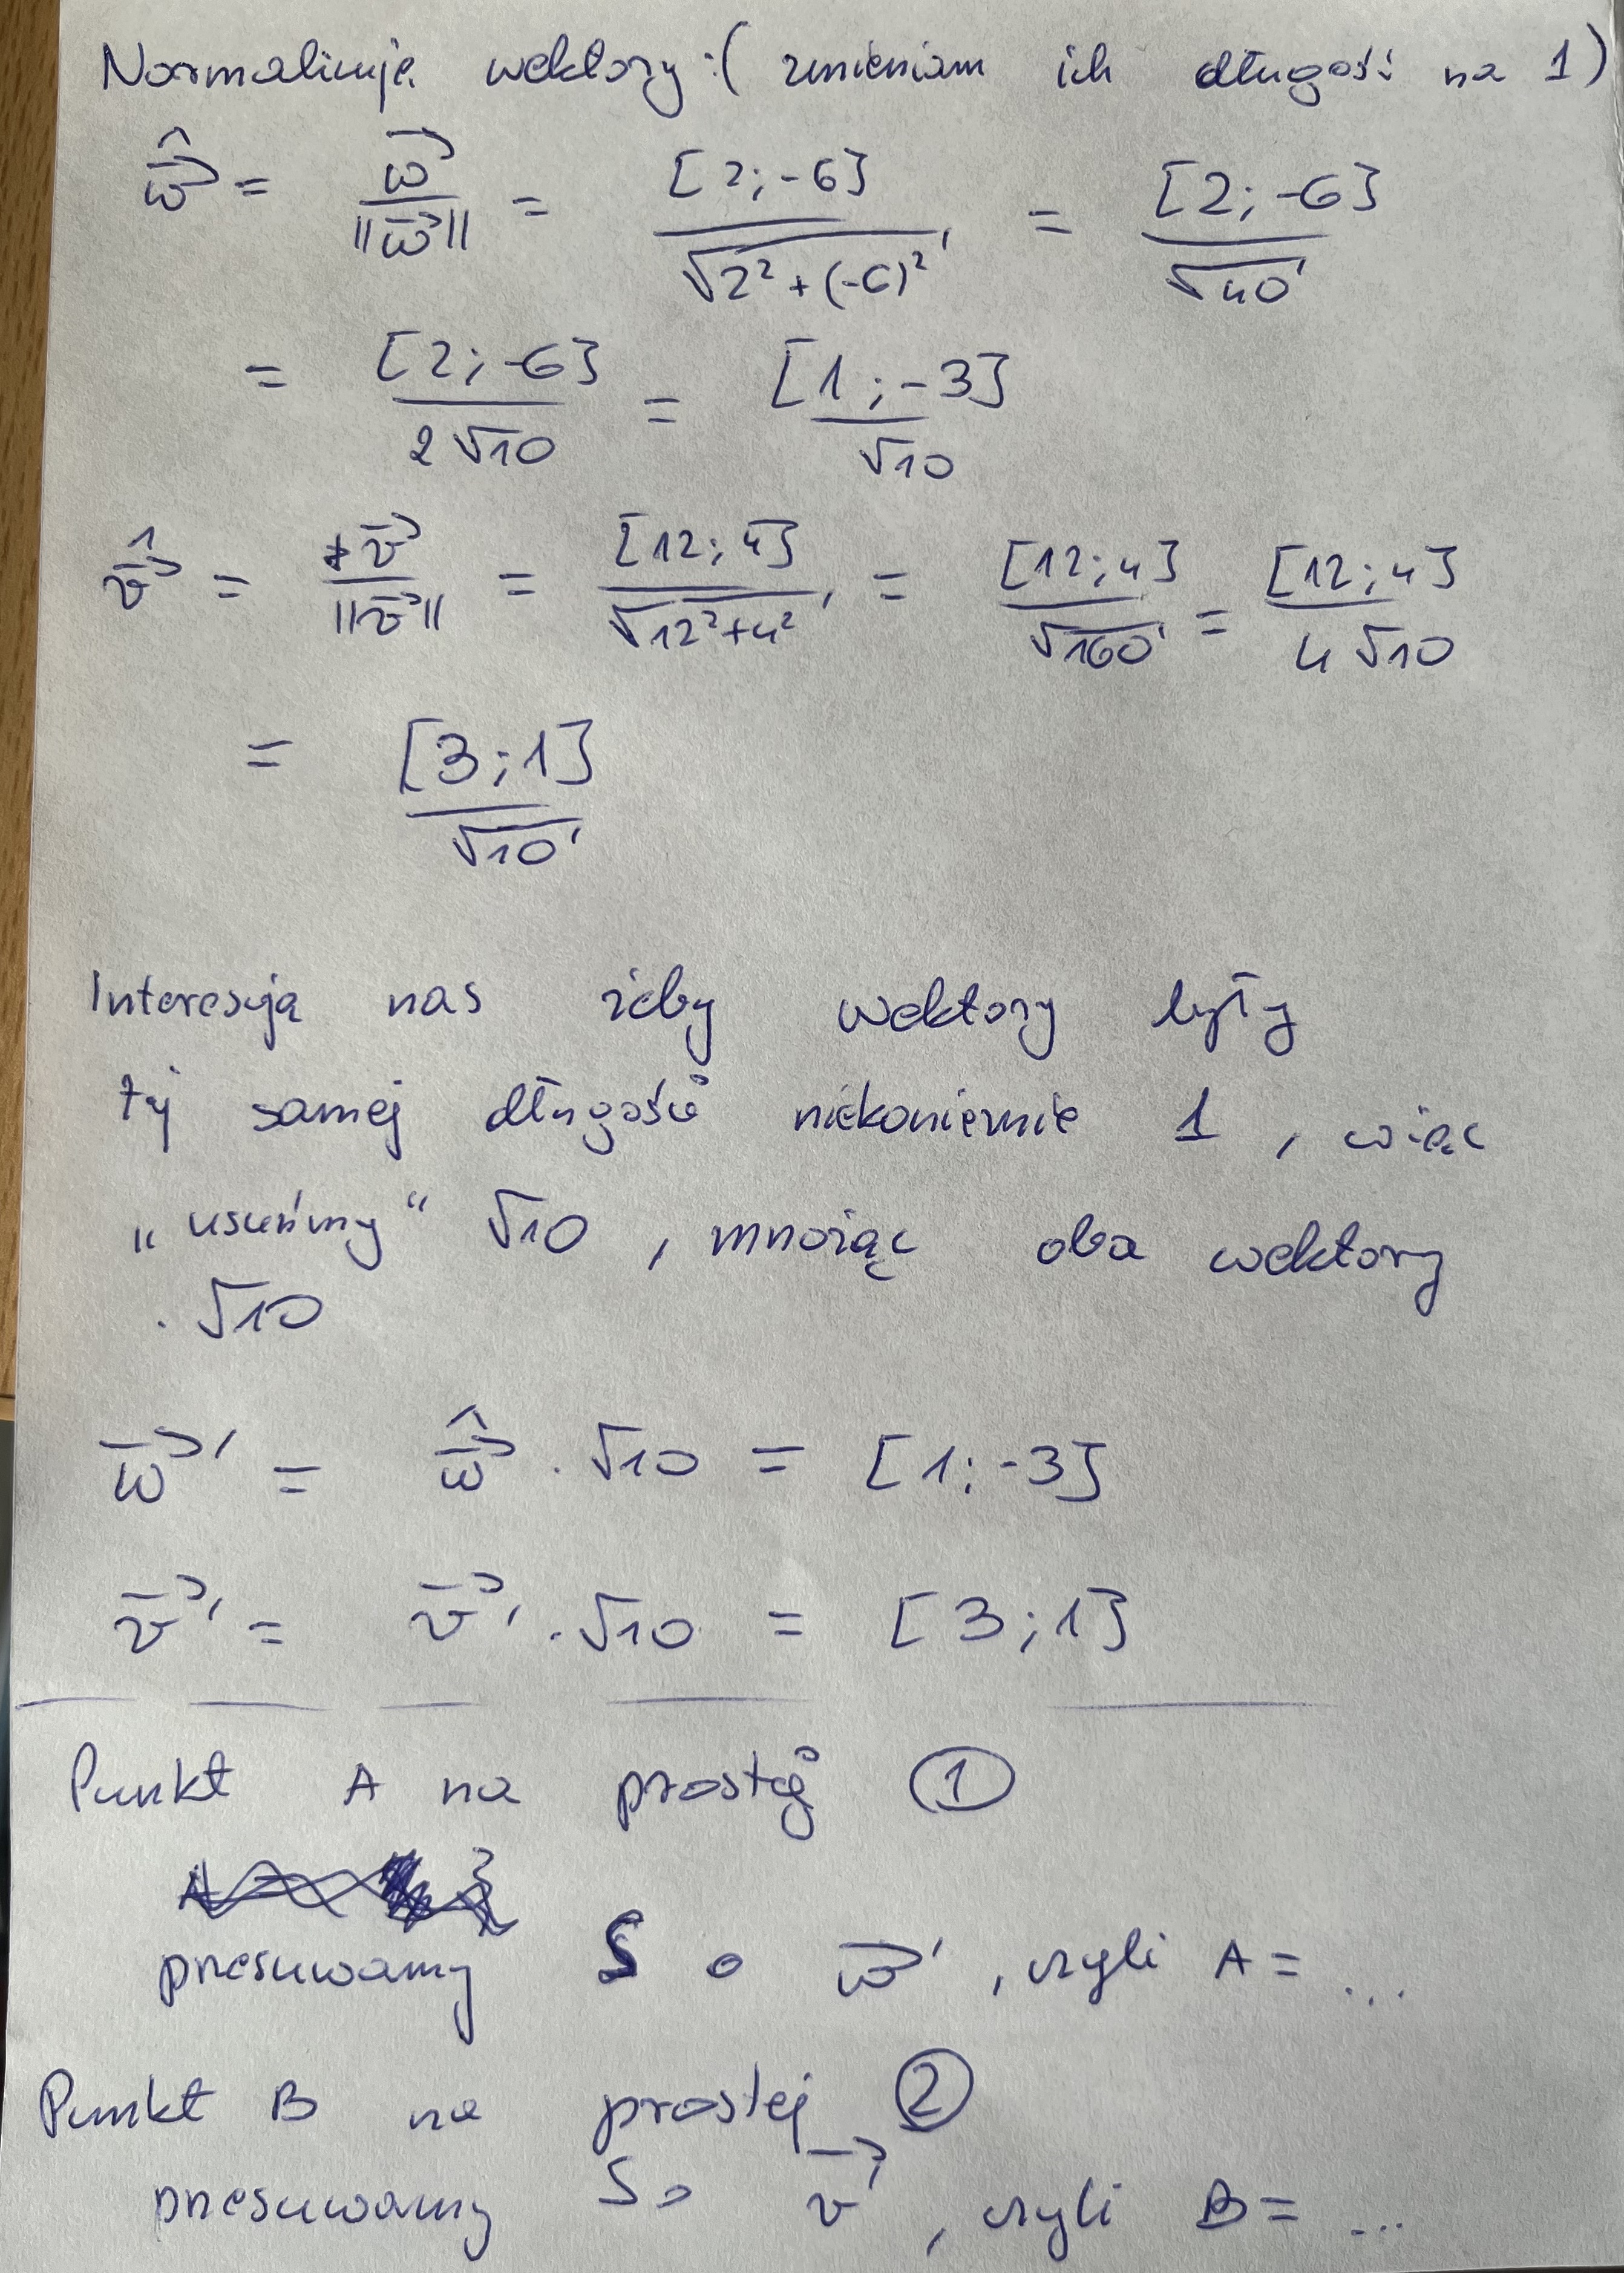 Normalizuję wektory: (zmieniam ich długość na 1)
ŵ⃗ = w⃗ / ||w⃗|| = [2;-6] / √(2²+(-6)²) = [2;-6] / √40
= [2;-6] / 2√10 = [1;-3] / √10
v̂⃗ = v⃗ / ||v⃗|| = [12;4] / √(12²+4²) = [12;4] / √160 = [12;4] / 4√10
= [3;1] / √10
Interesują nas żeby wektory były
tej samej długości niekoniecznie 1, więc
„usuńmy“ √10, mnożąc oba wektory
· √10
w⃗' = ŵ⃗ · √10 = [1;-3]
v⃗' = v⃗' · √10 = [3;1]
Punkt A na prostej ①
przesuwamy S o w⃗', czyli A = ...
Punkt B na prostej ②
przesuwamy S o v⃗', czyli B = ...